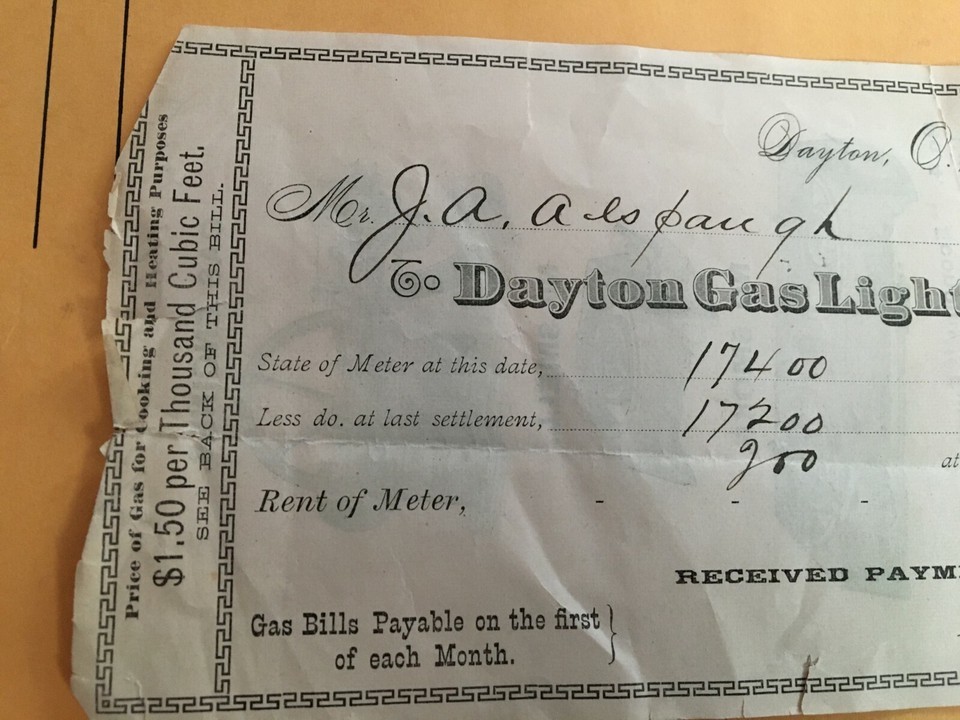 Price of Gas for Cooking and Heating Purposes
$1.50 per Thousand Cubic Feet.
SEE BACK OF THIS BILL.
Dayton, O.
Mr. J. A. Alspaugh
To Dayton Gas Light
State of Meter at this date, 17400
Less do. at last settlement, 17200
200 at
Rent of Meter, - - -
RECEIVED PAYM
Gas Bills Payable on the first
of each Month.